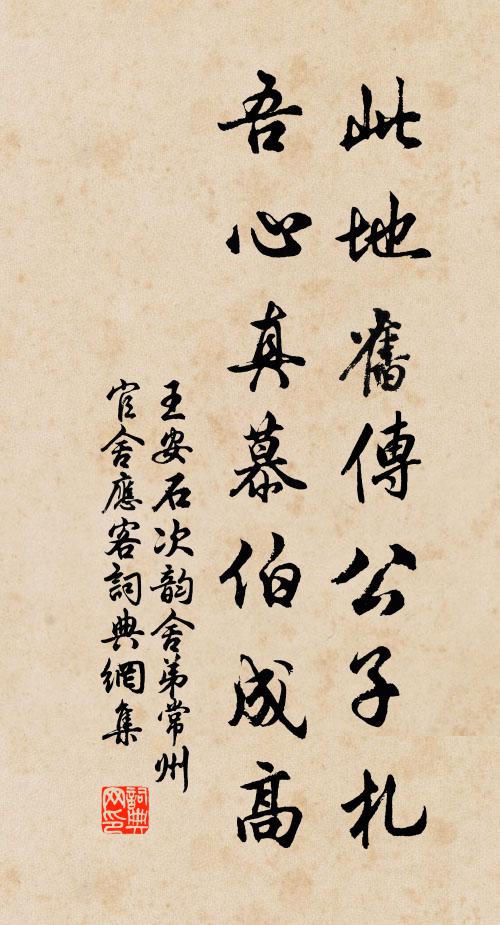 此地舊傳公子札
吾心真慕伯成高
王安石次韵舍弟常州
官舍應客詞典網集
詞典網印